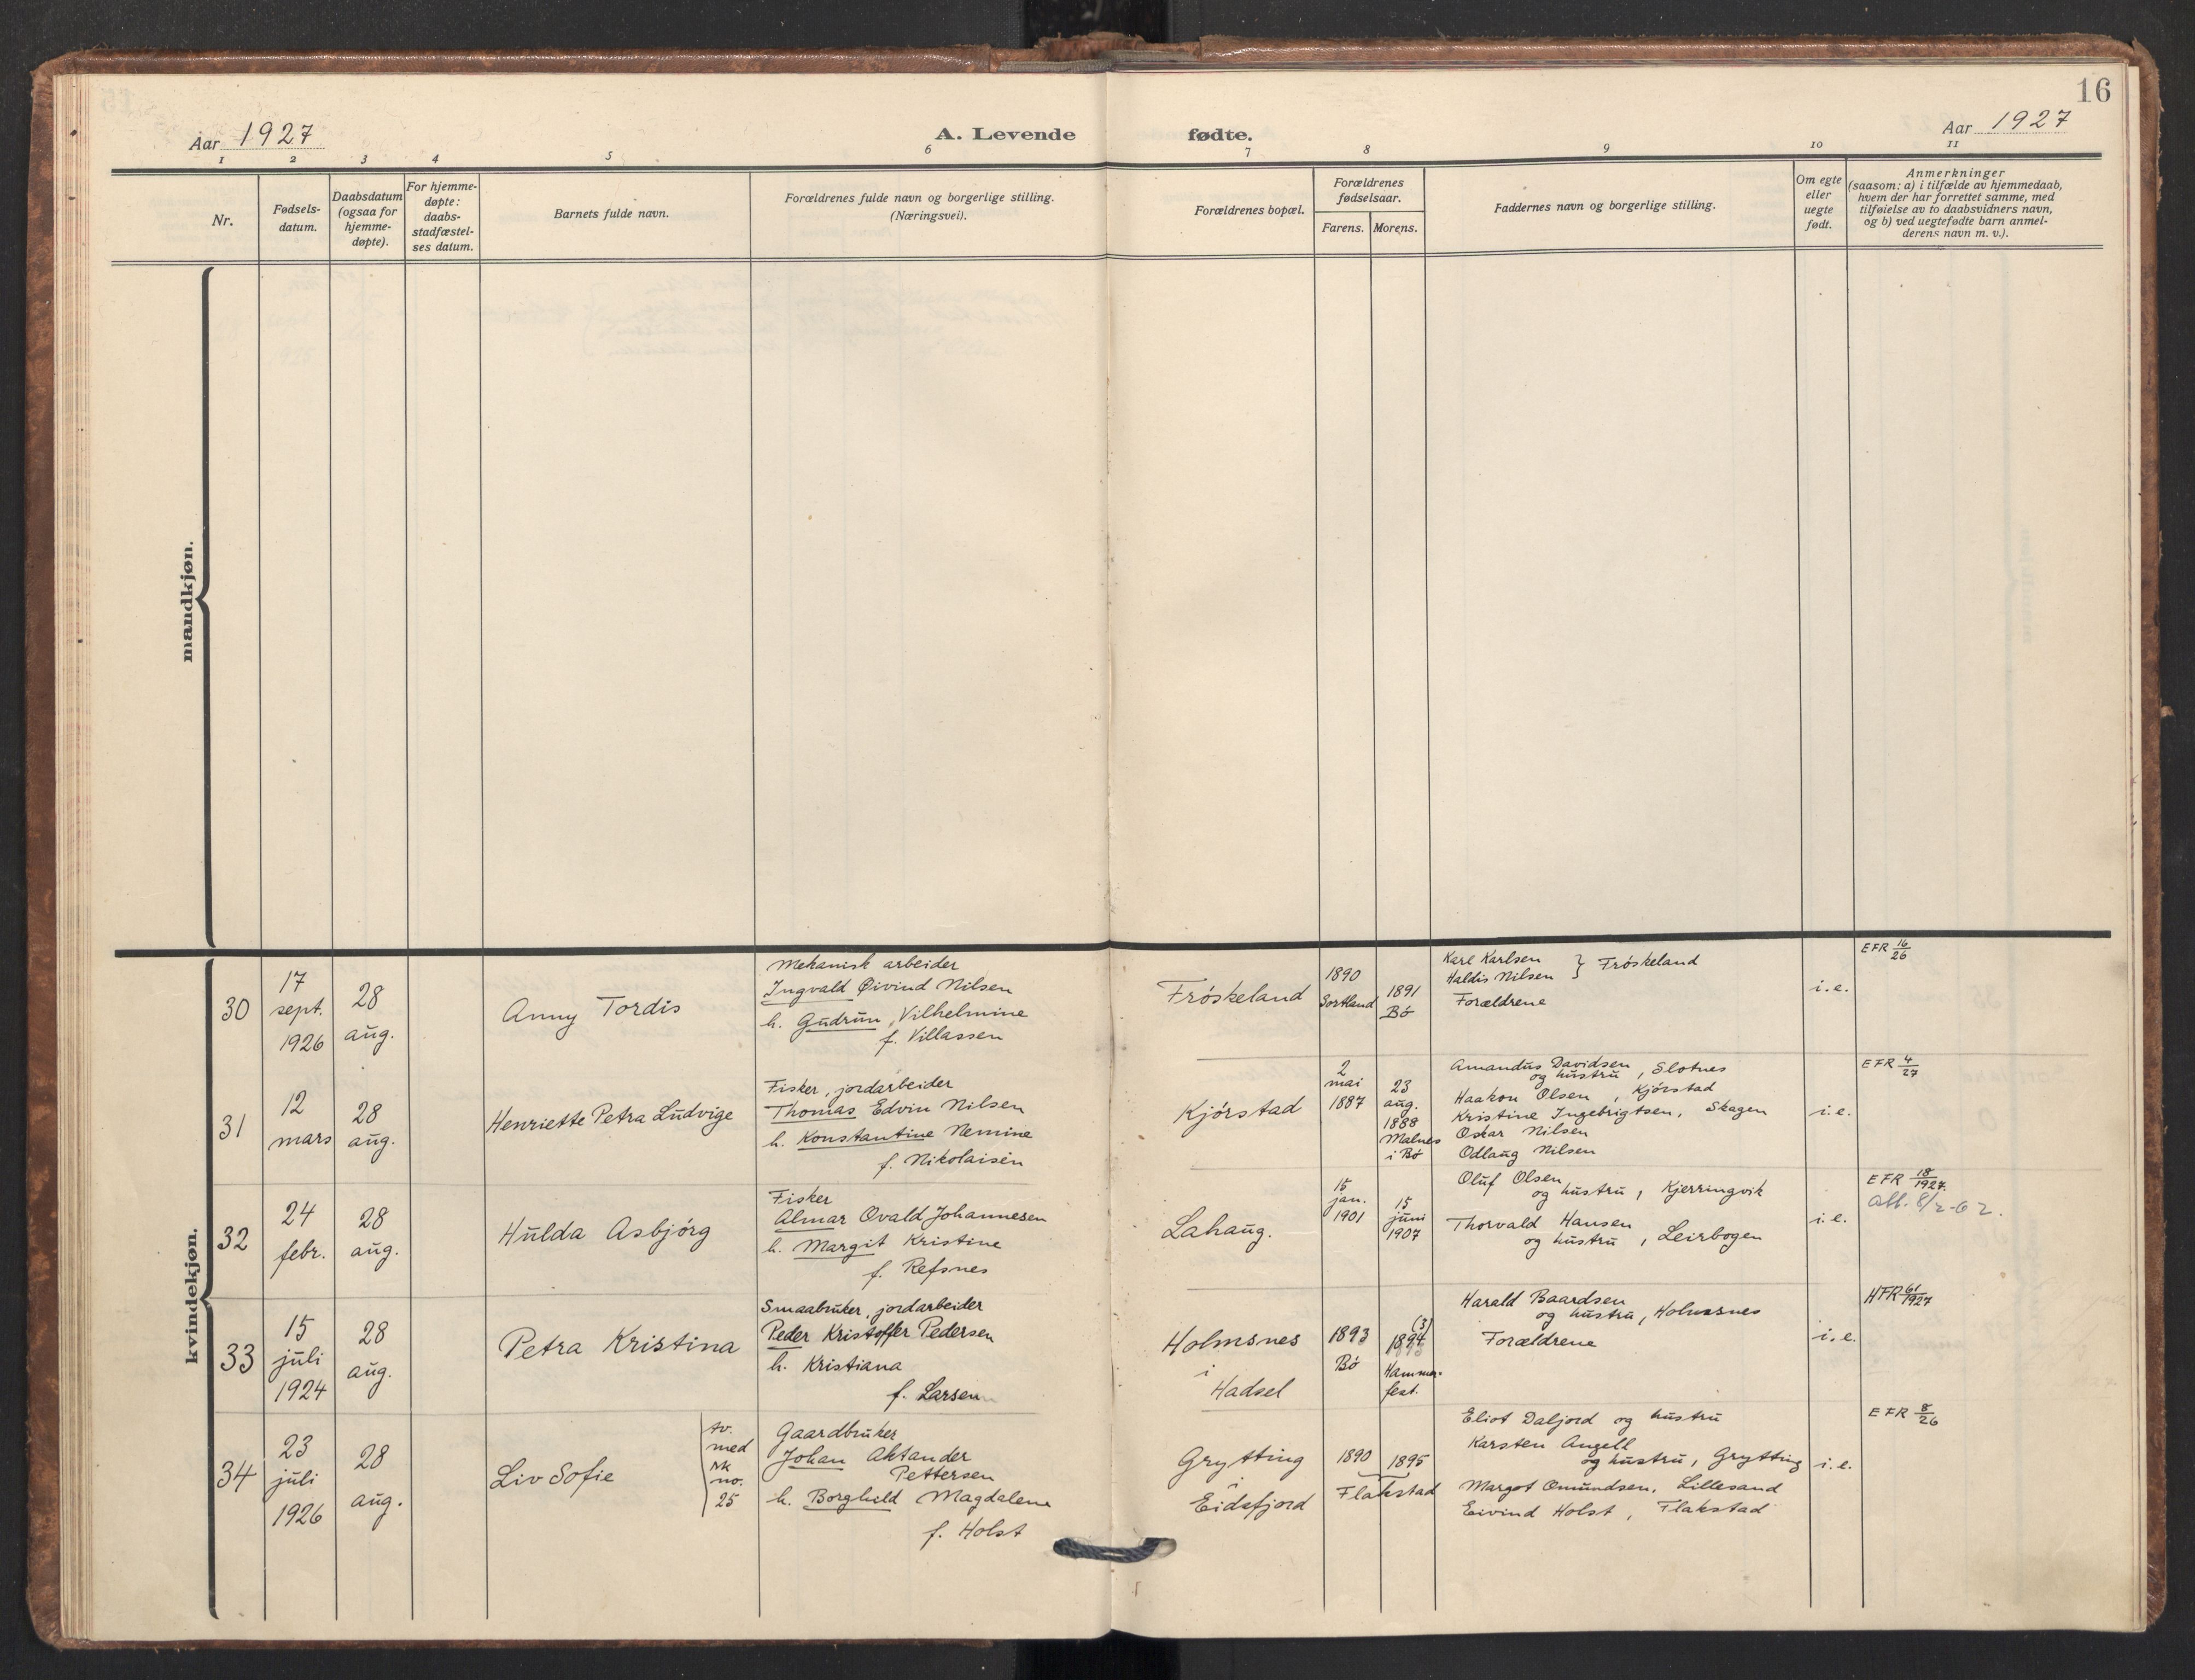 16
Aar 1927
A. Levende fødte.
Aar 1927
1 2 3 4 5 6 7 8 9 10 11
Nr.
Fødsels-
datum.
Daabsdatum
(ogsaa for
hjemme-
døpte).
For hjemme-
døpte:
daabs-
stadfæstel-
ses datum.
Barnets fulde navn.
Forældrenes fulde navn og borgerlige stilling.
(Næringsvei).
Forældrenes bopæl.
Forældrenes
fødselsaar.
Farens. Morens.
Faddernes navn og borgerlige stilling.
Om egte
eller
uegte
født.
Anmerkninger
(saasom: a) i tilfælde av hjemmedaab,
hvem der har forrettet samme, med
tilføielse av to daabsvidners navn,
og b) ved uegtefødte barn anmel-
derens navn m. v.).
mandkjøn.
kvindekjøn.
30
17
sept.
1926
28
aug.
Anny Tordis
Mekanisk arbeider
Ingvald Øivind Nilsen
h. Gudrun Vilhelmine
f. Villassen
Frøskeland
1890
Sortland
1891
Bø
Karl Karlsen
Haldis Nilsen } Frøskeland
Forældrene
i.e.
EFR 16/26
31
12
mars
28
aug.
Henriette Petra Ludvige
Fisker, jordarbeider
Thomas Edvin Nilsen
h. Konstantine Nemine
f. Nikolaisen
Kjørstad
2
mai
1887
23
aug.
1888
Malnes
i Bø
Amandus Davidsen
og hustru, Slotnes
Haakon Olsen, Kjørstad
Kristine Ingebrigtsen, Skagen
Oskar Nilsen
Odlaug Nilsen
i.e.
EFR 4/27
32
24
febr.
28
aug.
Hulda Asbjørg
Fisker
Almar Ovald Johannesen
h. Margit Kristine
f. Refsnes
Lahaug.
15
jan.
1901
15
juni
1907
Oluf Olsen
og hustru, Kjerringvik
Thorvald Hansen
og hustru, Leirbogen
i.e.
EFR 18/1927.
att. 8/2-62.
33
15
juli
1924
28
aug.
Petra Kristina
Smaabruker, jordarbeider
Peder Kristoffer Pedersen
h. Kristiana
f. Larsen
Holmsnes
i
Hadsel
1893
Bø
(3)
1894
Hammer-
fest.
Harald Baardsen
og hustru, Holmsnes
Forældrene
i.e.
HFR 61/1927
34
23
juli
1926
28
aug.
Liv Sofie
tv.
med
Mk
no.
25
Gaardbruker
Johan Aktander
Pettersen
h. Borghild Magdalena
f. Holst
Grytting
i
Eidsfjord
1890 1895
Flakstad
Eliot Daljord og hustru
Karsten Angell
og hustru, Grytting
Margot Omundsen, Lillesand
Eivind Holst, Flakstad
i.e.
EFR 8/26